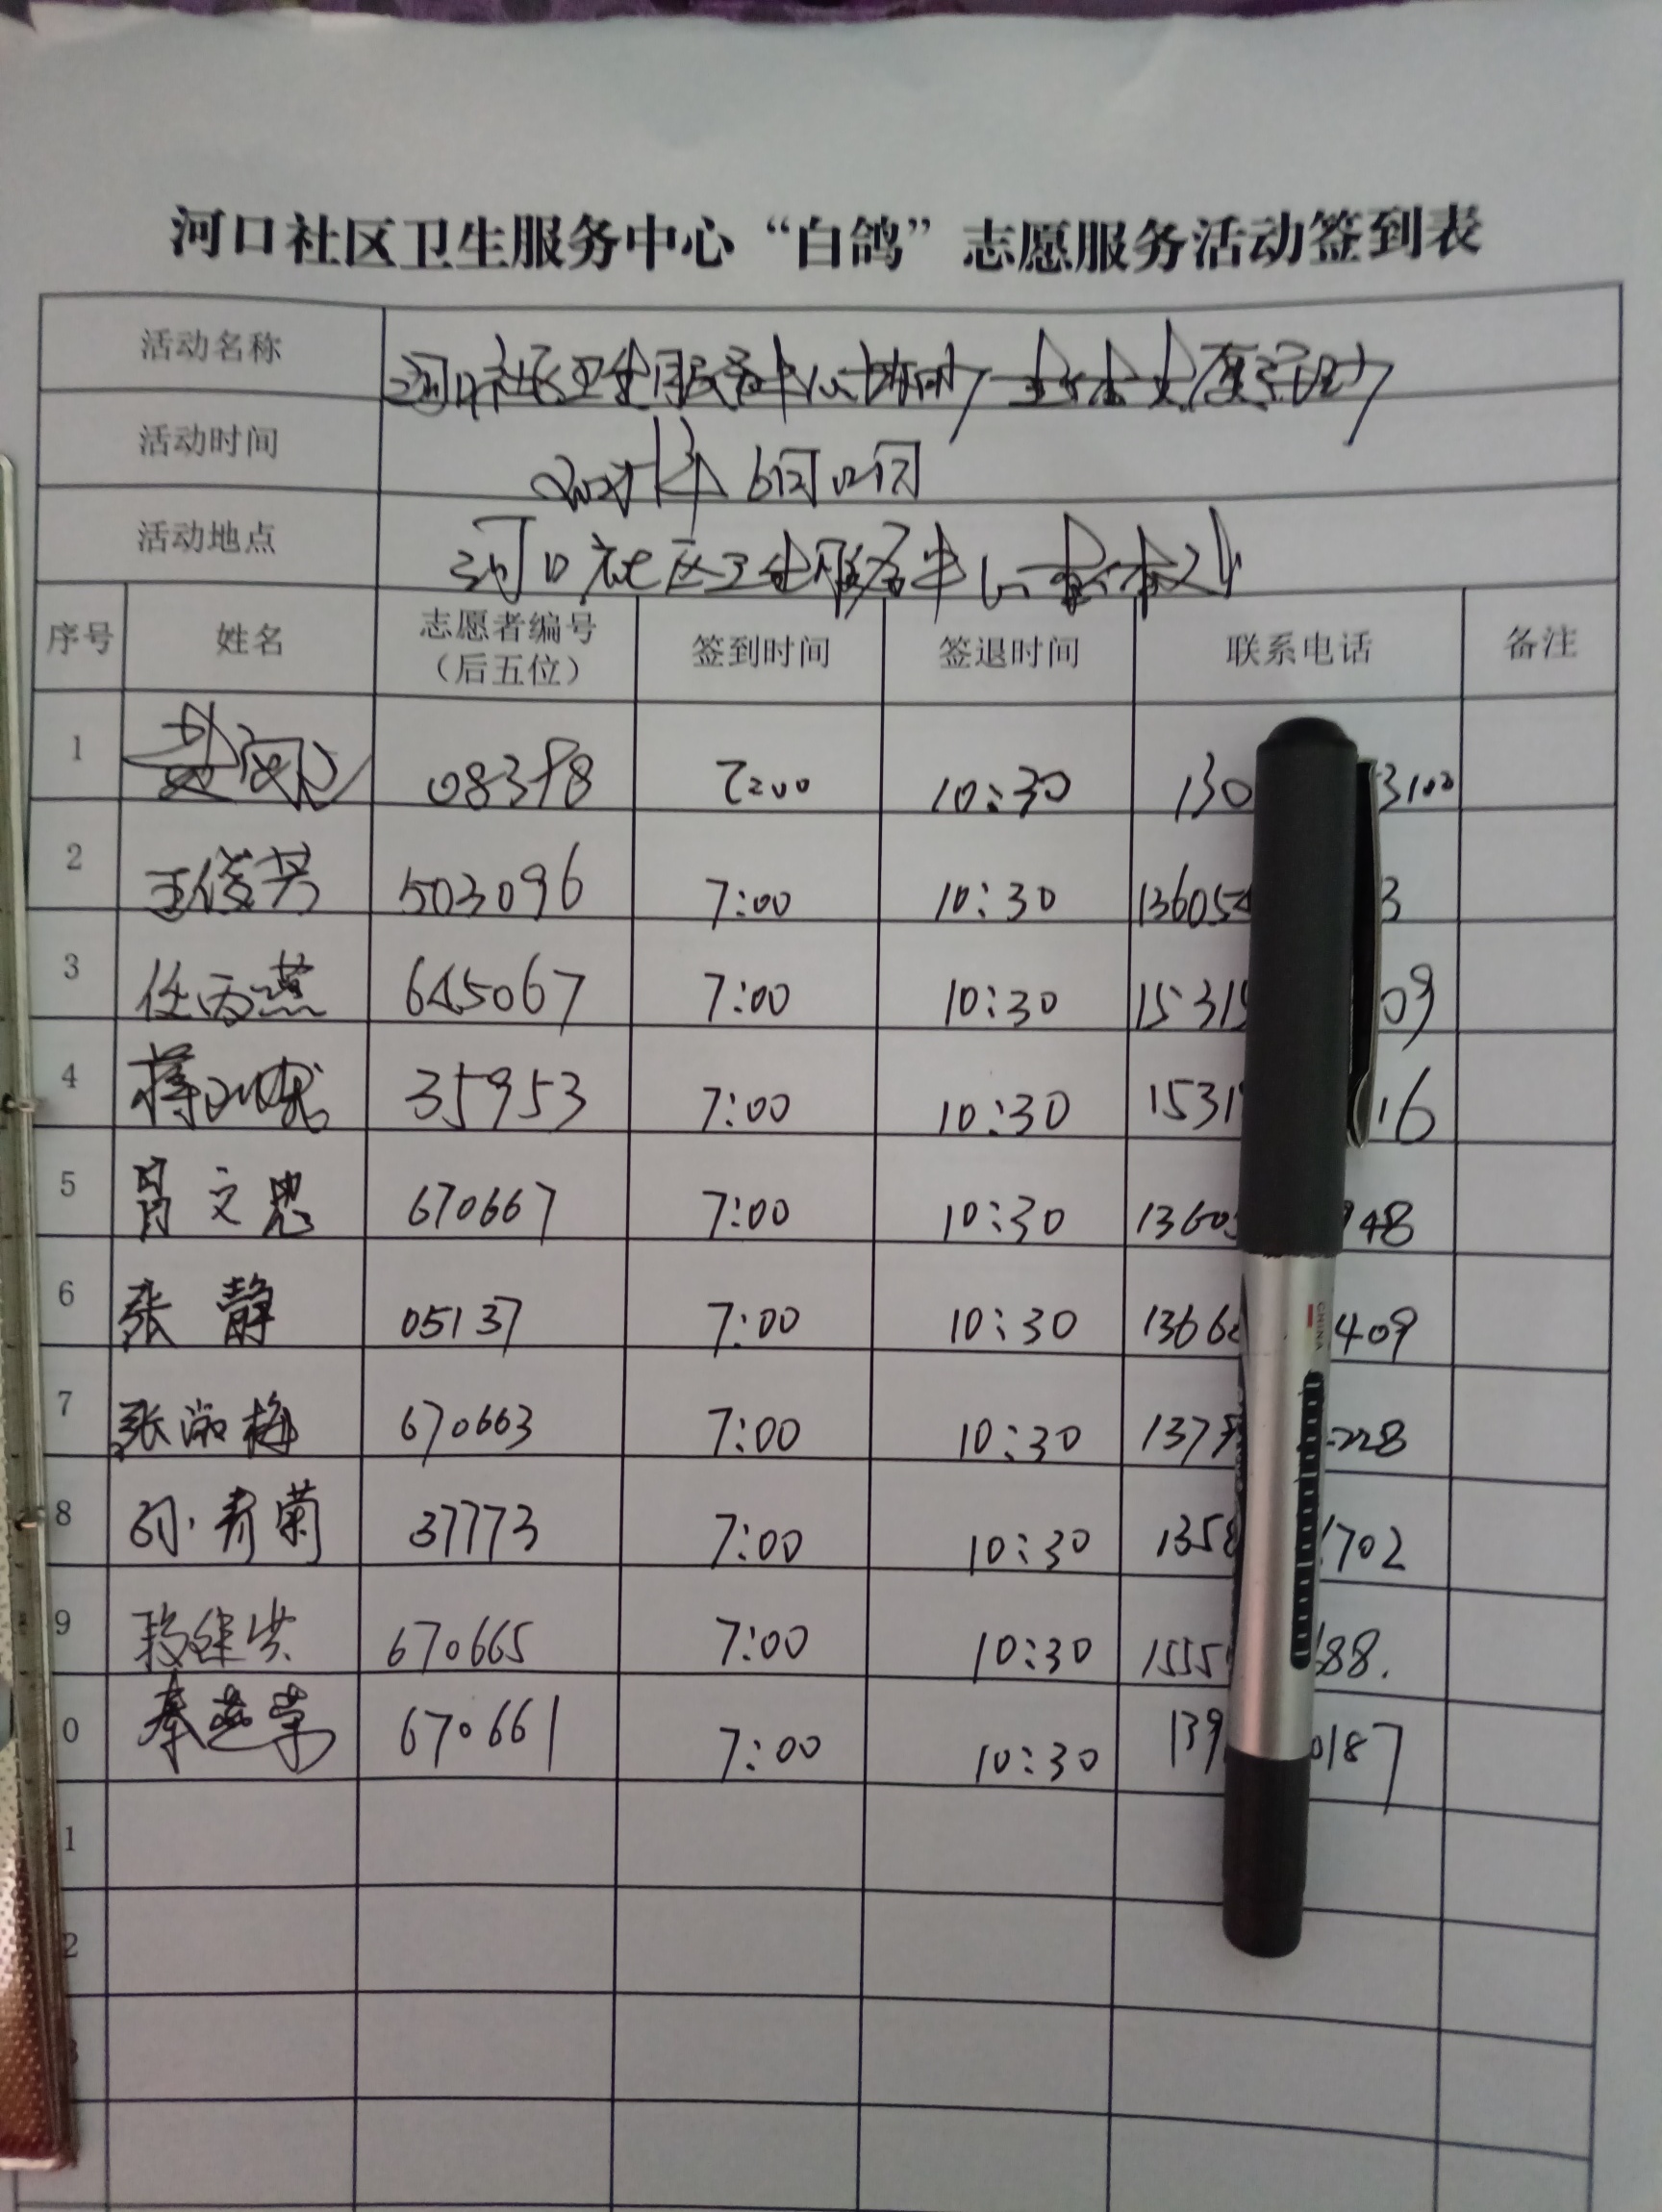 河口社区卫生服务中心“白鸽”志愿服务活动签到表
活动名称 河口社区卫生服务中心
活动时间
活动地点 河口社区卫生服务中心
序号 姓名 志愿者编号（后五位） 签到时间 签退时间 联系电话 备注
1 08398 7:00 10:30 130 3100
2 王俊芳 503096 7:00 10:30 136054 3
3 任丙燕 645067 7:00 10:30 15315 09
4 35953 7:00 10:30 1531 16
5 肖文忠 670667 7:00 10:30 13605 948
6 张静 05137 7:00 10:30 1366 409
7 张淑梅 670663 7:00 10:30 137 228
8 孙青菊 37773 7:00 10:30 1358 1702
9 段继洪 670665 7:00 10:30 1555 188.
0 秦 荣 670661 7:00 10:30 139 0187
1
2
CHINA